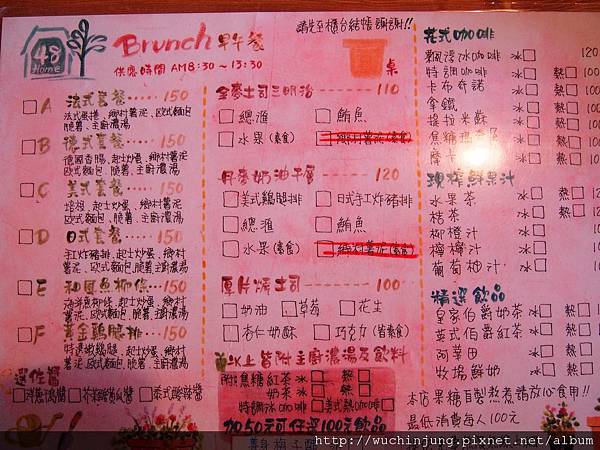 48
Home
Brunch 早午餐
供應時間 AM8:30~13:30
請先至櫃台結帳 謝謝!!
桌
□A 法式套餐······150
法式蛋捲、鄉村薯泥、歐式麵包
脆薯、主廚濃湯
□B 德式套餐······150
德國香腸、起士炒蛋、鄉村薯泥
歐式麵包、脆薯、主廚濃湯
□C 美式套餐······150
培根、起士炒蛋、鄉村薯泥
歐式麵包、脆薯、主廚濃湯
□D 日式套餐······150
手工炸豬排、起士炒蛋、鄉村
薯泥、歐式麵包、脆薯、主廚濃湯
□E 和風魚柳條···150
海洋魚柳條、起士炒蛋、鄉村
薯泥、歐式麵包、脆薯、主廚濃湯
□F 黃金雞腿排···150
起士炒蛋、鄉村
薯泥、歐式麵包、脆薯、主廚濃湯
選佐醬
□泰式酸辣醬
全麥土司三明治······110
□總滙 □鮪魚
□水果(素食)
丹麥奶油千層······120
□美式雞腿排 □日式手工炸豬排
□總滙 □鮪魚
□水果(素食)
厚片燒土司······100
□奶油 □草莓 □花生
□杏仁奶酥 □巧克力
以上皆附主廚濃湯及飲料
附 焦糖紅茶 冰□ 熱□
奶茶 冰□ 熱□
特調冰咖啡□ 美式熱咖啡□
加50元可任選100元飲品
花式咖啡
飄浮冰咖啡 冰□ 120
特調咖啡 冰□ 熱□ 100
卡布奇諾 冰□ 熱□
拿鐵 冰□ 熱□
提拉米蘇 冰□ 熱□
焦糖瑪奇朵 冰□ 熱□
摩卡 冰□ 熱□
現榨鮮果汁
水果茶 冰□ 熱□ 120
桔茶 冰□ 熱□
柳橙汁 冰□
檸檬汁 冰□
葡萄柚汁 冰□
精選飲品
皇家伯爵奶茶 冰□ 熱□
英式伯爵紅茶 冰□ 熱□
阿華田 冰□ 熱□
牧場鮮奶 冰□ 熱□
本店果糖自製熬煮請放心食用!!
最低消費每人100元
http://wuchinjung.pixnet.net/album